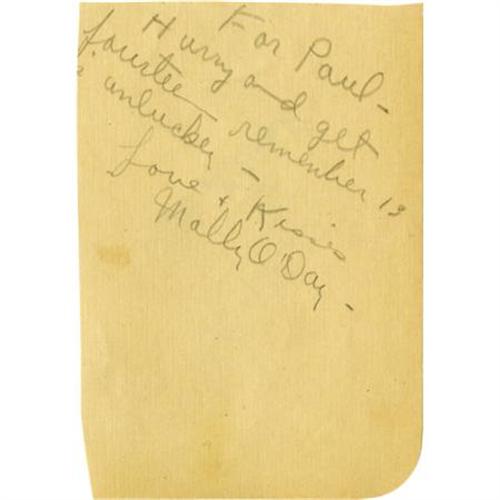 For Paul -
Hurry and get
fourteen remember 13
is unlucky -
Love + Kisses
Molly O'Day -